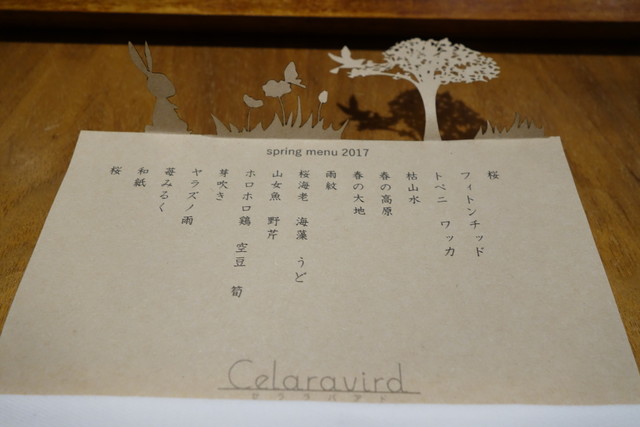 spring menu 2017
桜
フィトンチッド
トペニ　ワッカ
枯山水
春の高原
春の大地
雨紋
桜海老　海藻　うど
山女魚　野芹
ホロホロ鶏　空豆　筍
芽吹き
ヤラズノ雨
苺みるく
和紙
桜
Celaravird
セララバアド